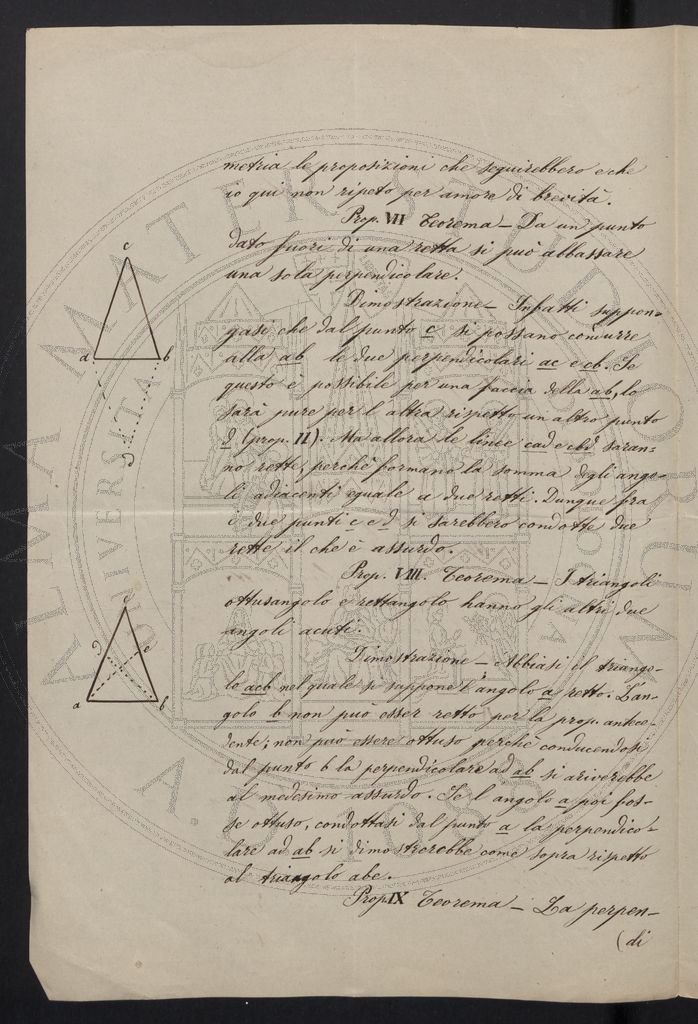 metria le proposizioni che seguirebbero e che
io qui non ripeto per amore di brevità.
Prop. VII Teorema — Da un punto
dato fuori di una retta si può abbassare
una sola perpendicolare.
Dimostrazione — Infatti suppon-
gasi che dal punto c si possano condurre
alla ab le due perpendicolari ac e cb. Se
questo è possibile per una faccia della ab, lo
sarà pure per l'altra rispetto un altro punto
d (prop. II). Ma allora le linee cad e cbd saran=
no rette, perchè formano la somma degli ango-
li adiacenti eguale a due retti. Dunque fra
i due punti c e d si sarebbero condotte due
rette il che è assurdo.
Prop. VIII. Teorema — I triangoli
ottusangolo e rettangolo hanno gli altri due
angoli acuti.
Dimostrazione — Abbiasi il triango-
lo acb nel quale si suppone l'angolo a retto. L'an-
golo b non può esser retto per la prop. antece-
dente; non può essere ottuso perchè conducendosi
dal punto b la perpendicolare ad ab si ariverebbe
al medesimo assurdo. Se l angolo a poi fos-
se ottuso, condottasi dal punto a la perpendico-
lare ad ab si dimostrerebbe come sopra rispetto
al triangolo abe.
Prop IX Teorema — La perpen-
(di
c
a
b
d
c
d
e
a
b
ALMA MATER STUDIORUM
UNIVERSITA
BOLOGNA
A.D. 1088